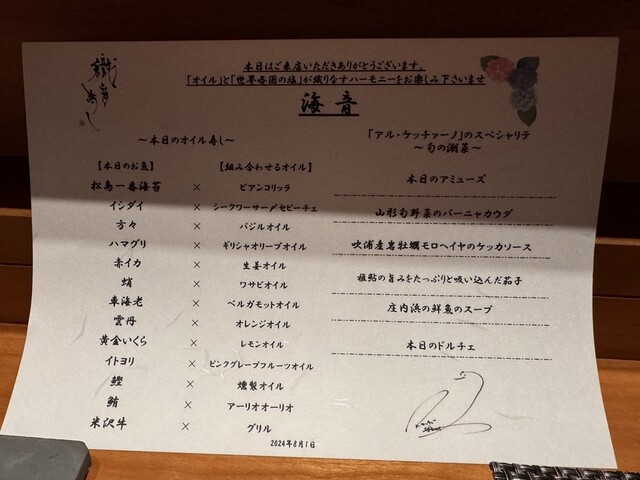 本日はご来店いただきありがとうございます。
「オイル」と「世界各国の塩」が織りなすハーモニーをお楽しみ下さいませ
海音
～本日のオイル寿し～
【本日のお魚】 【組み合わせるオイル】
松島一番海苔 × ビアンコリッラ
イシダイ × シークワーサーとセビーチェ
方々 × バジルオイル
ハマグリ × ギリシャオリーブオイル
赤イカ × 生姜オイル
蛸 × ワサビオイル
車海老 × ベルガモットオイル
雲丹 × オレンジオイル
黄金いくら × レモンオイル
イトヨリ × ピンクグレープフルーツオイル
鰹 × 燻製オイル
鮪 × アーリオオーリオ
米沢牛 × グリル
「アル・ケッチァーノ」のスペシャリテ
～旬の潮菜～
本日のアミューズ
山形旬野菜のバーニャカウダ
吹浦産岩牡蠣モロヘイヤのケッカソース
稚鮎の旨みをたっぷりと吸い込んだ茄子
庄内浜の鮮魚のスープ
本日のドルチェ
2024年8月1日